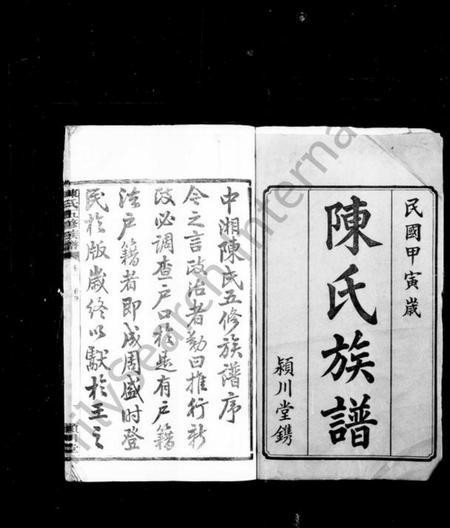 民國甲寅歲
陳氏族譜
潁川堂鐫
中湘陳氏五修族譜序
今之言政治者動曰推行新
政必調查戶口於是有戶籍
法戶籍者即成周盛時登
民於版歲終以獻於王之
陳氏五修族譜
FamilySearch International